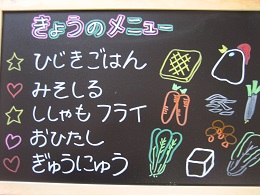 きょうのメニュー
☆ひじきごはん
♡みそしる
☆ししゃもフライ
♡おひたし
♡ぎゅうにゅう